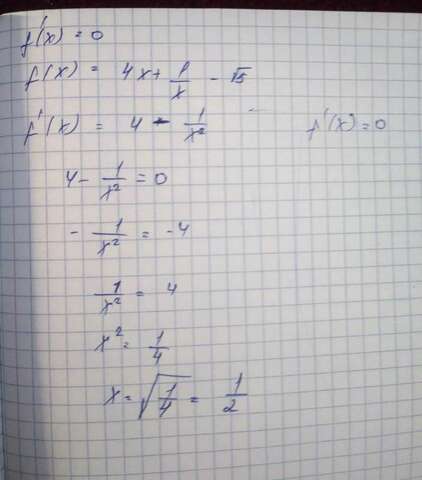 f'(x) = 0
f(x) = 4x + 1/x - √5
f'(x) = 4 - 1/x² f'(x) = 0
4 - 1/x² = 0
- 1/x² = -4
1/x² = 4
x² = 1/4
x = √(1/4) = 1/2